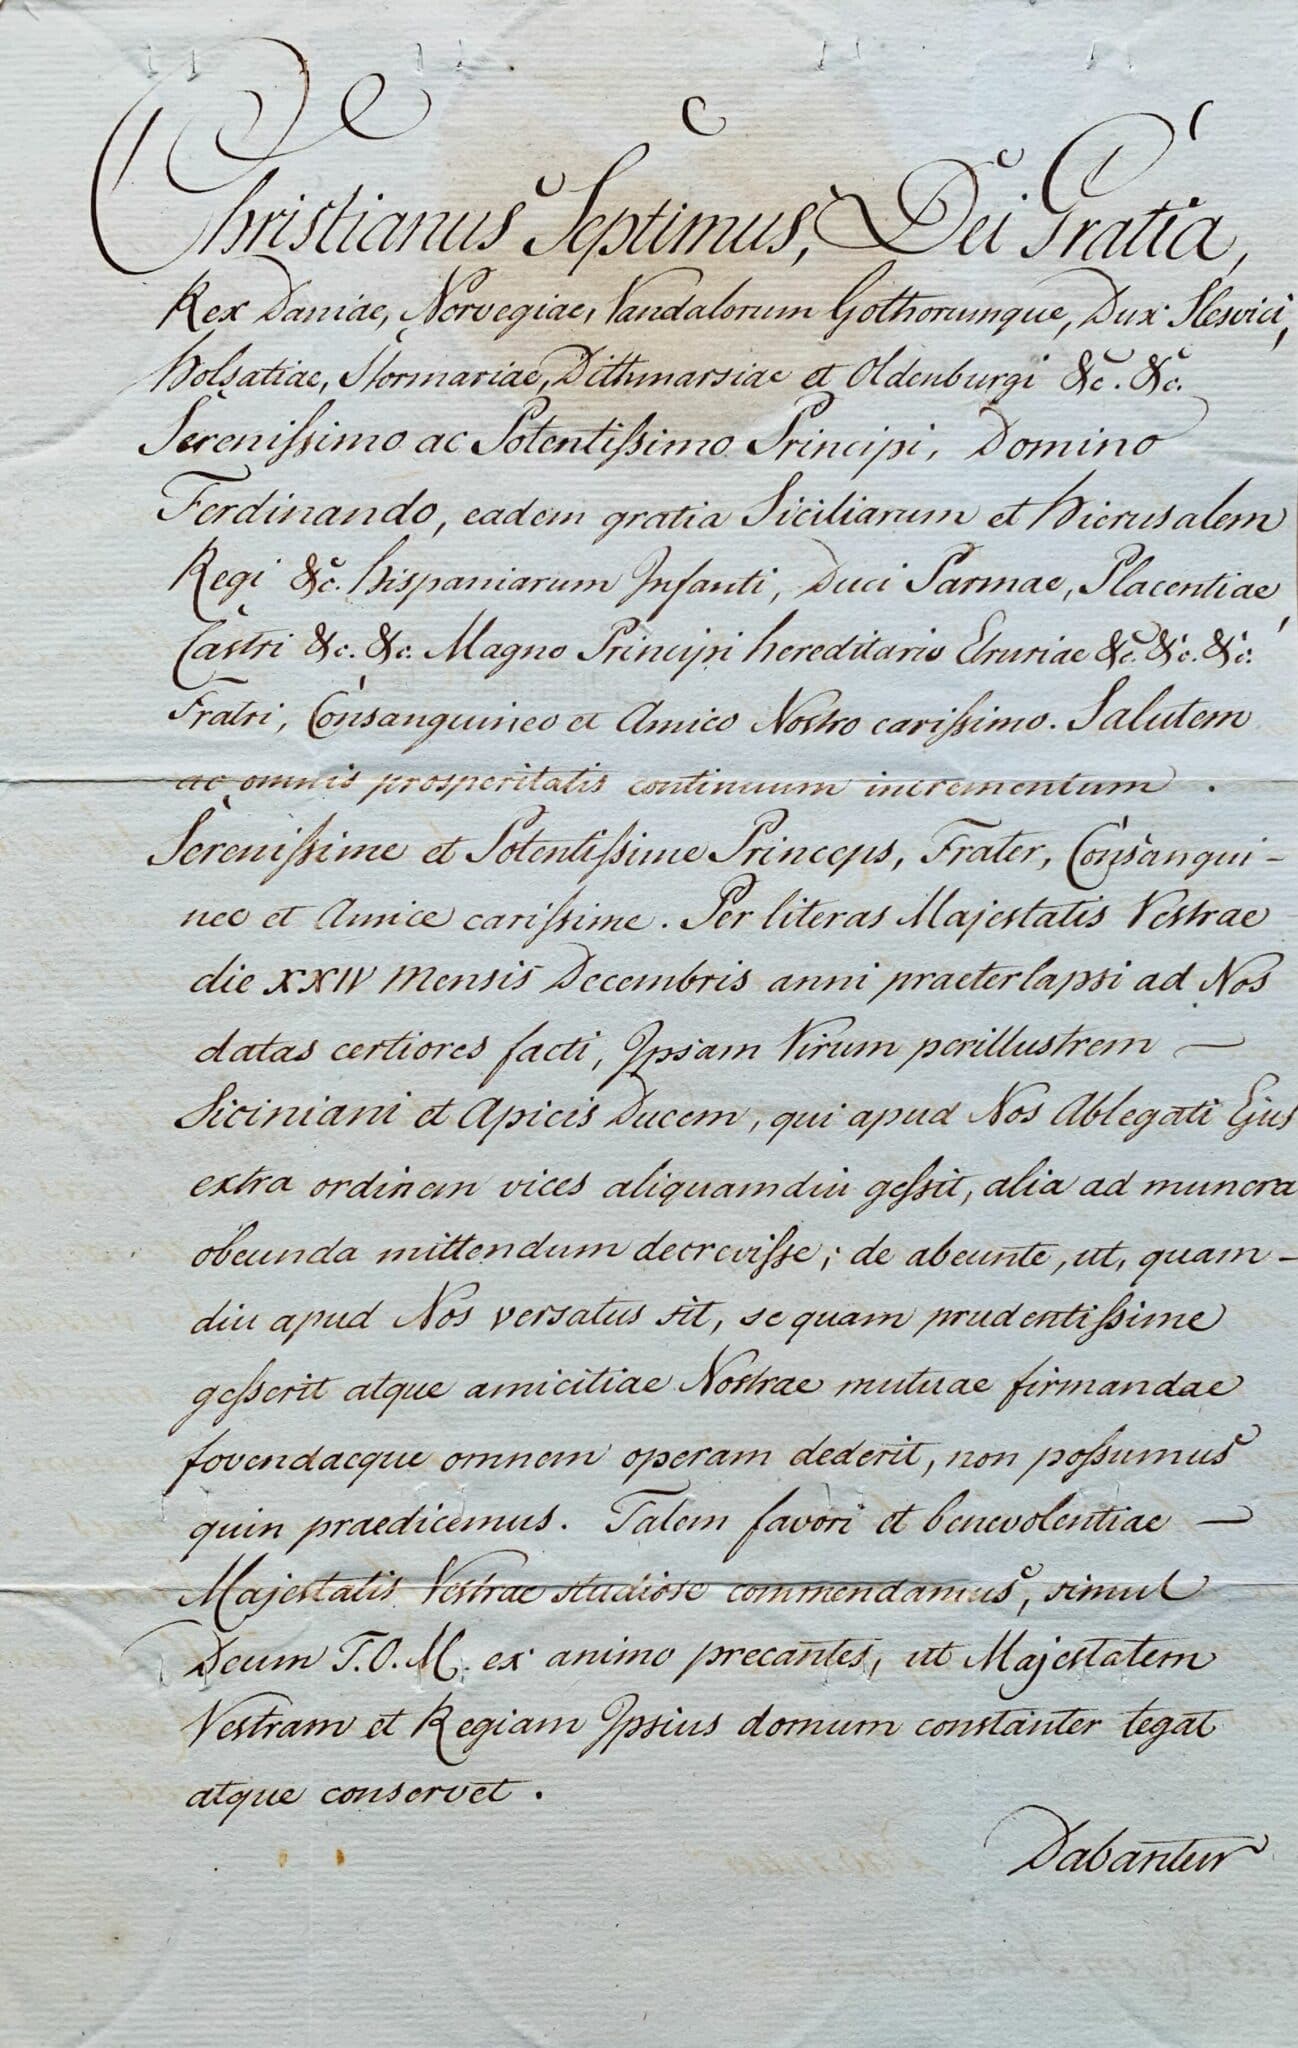 Christianus Septimus, Dei Gratia,
Rex Daniae, Norvegiae, Vandalorum Gothorumque, Dux Slesvici,
Holsatiae, Stormariae, Dithmarsiae et Oldenburgi &c. &c.
Serenissimo ac Potentissimo Principi, Domino
Ferdinando, eadem gratia Siciliarum et Hierusalem
Regi &c. Hispaniarum Infanti, Duci Parmae, Placentiae,
Castri &c. &c. Magno Principi hereditario Etruriae &c. &c. &c.
Fratri, Consanguineo et Amico Nostro carissimo. Salutem
ac omnis prosperitatis continuum incrementum.
Serenissime et Potentissime Princeps, Frater, Consangui-
nee et Amice carissime. Per literas Majestatis Vestrae
die XXIV mensis Decembris anni praeterlapsi ad Nos
datas certiores facti, Ipsam Virum perillustrem —
Siciniani et Apicis Ducem, qui apud Nos Ablegati Ejus
extra ordinem vices aliquamdiu gessit, alia ad munera
obeunda mittendum decrevisse; de abeunte, ut, quam-
diu apud Nos versatus sit, se quam prudentissime
gesserit atque amicitiae Nostrae mutuae firmandae
fovendaeque omnem operam dederit, non possumus
quin praedicemus. Talem favori et benevolentiae —
Majestatis Vestrae studiose commendamus, simul
Deum T.O.M. ex animo precantes, ut Majestatem
Vestram et Regiam Ipsius domum constanter tegat
atque conservet.
Dabantur